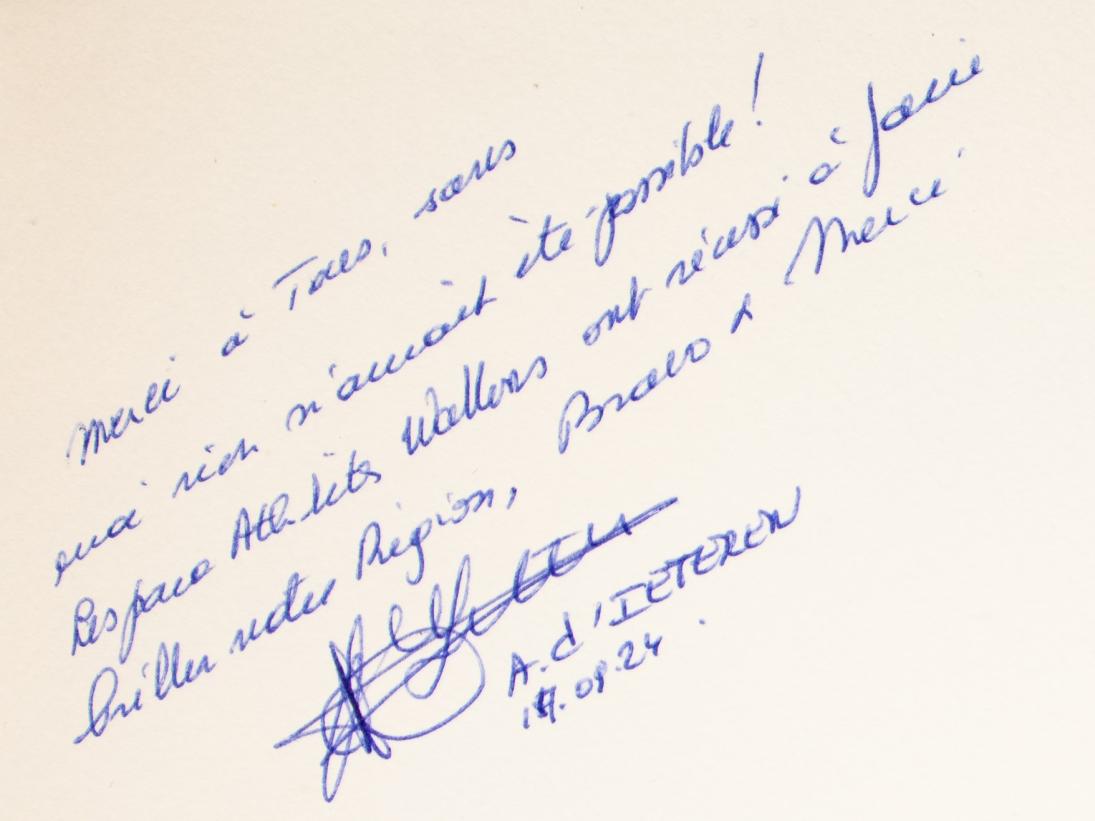 Merci à Tous, sans
quoi rien n'aurait été possible !
L'espace Athlètes Wallons ont réussi à faire
briller notre Région, Bravo & Merci
A. d'IETEREN
.09.24